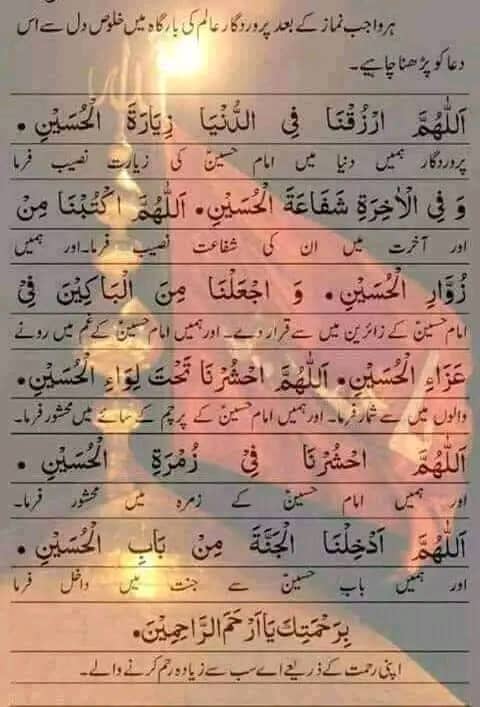 ہر واجب نماز کے بعد پروردگار عالم کی بارگاہ میں خلوص دل سے اس
دعا کو پڑھنا چاہیے۔
اَللّٰهُمَّ ارْزُقْنَا فِي الدُّنْيَا زِيَارَةَ الْحُسَيْنِ۔
پروردگار ہمیں دنیا میں امام حسینؑ کی زیارت نصیب فرما
وَ فِي الْاٰخِرَةِ شَفَاعَةَ الْحُسَيْنِ۔ اَللّٰهُمَّ اكْتُبْنَا مِنْ
اور آخرت میں ان کی شفاعت نصیب فرما۔ اور ہمیں
زُوَّارِ الْحُسَيْنِ۔ وَ اجْعَلْنَا مِنَ الْبَاكِيْنَ فِيْ
امام حسینؑ کے زائرین میں سے قرار دے۔ اور ہمیں امام حسینؑ کے غم میں رونے
عَزَاءِ الْحُسَيْنِ۔ اَللّٰهُمَّ احْشُرْنَا تَحْتَ لِوَاءِ الْحُسَيْنِ۔
والوں میں سے شمار فرما۔ اور ہمیں امام حسینؑ کے پرچم کے سائے میں محشور فرما۔
اَللّٰهُمَّ احْشُرْنَا فِيْ زُمْرَةِ الْحُسَيْنِ۔
اور ہمیں امام حسینؑ کے زمرہ میں محشور فرما۔
اَللّٰهُمَّ اَدْخِلْنَا الْجَنَّةَ مِنْ بَابِ الْحُسَيْنِ۔
اور ہمیں باب حسینؑ سے جنت میں داخل فرما
بِرَحْمَتِكَ يَا اَرْحَمَ الرَّاحِمِيْنَ۔
اپنی رحمت کے ذریعے اے سب سے زیادہ رحم کرنے والے۔